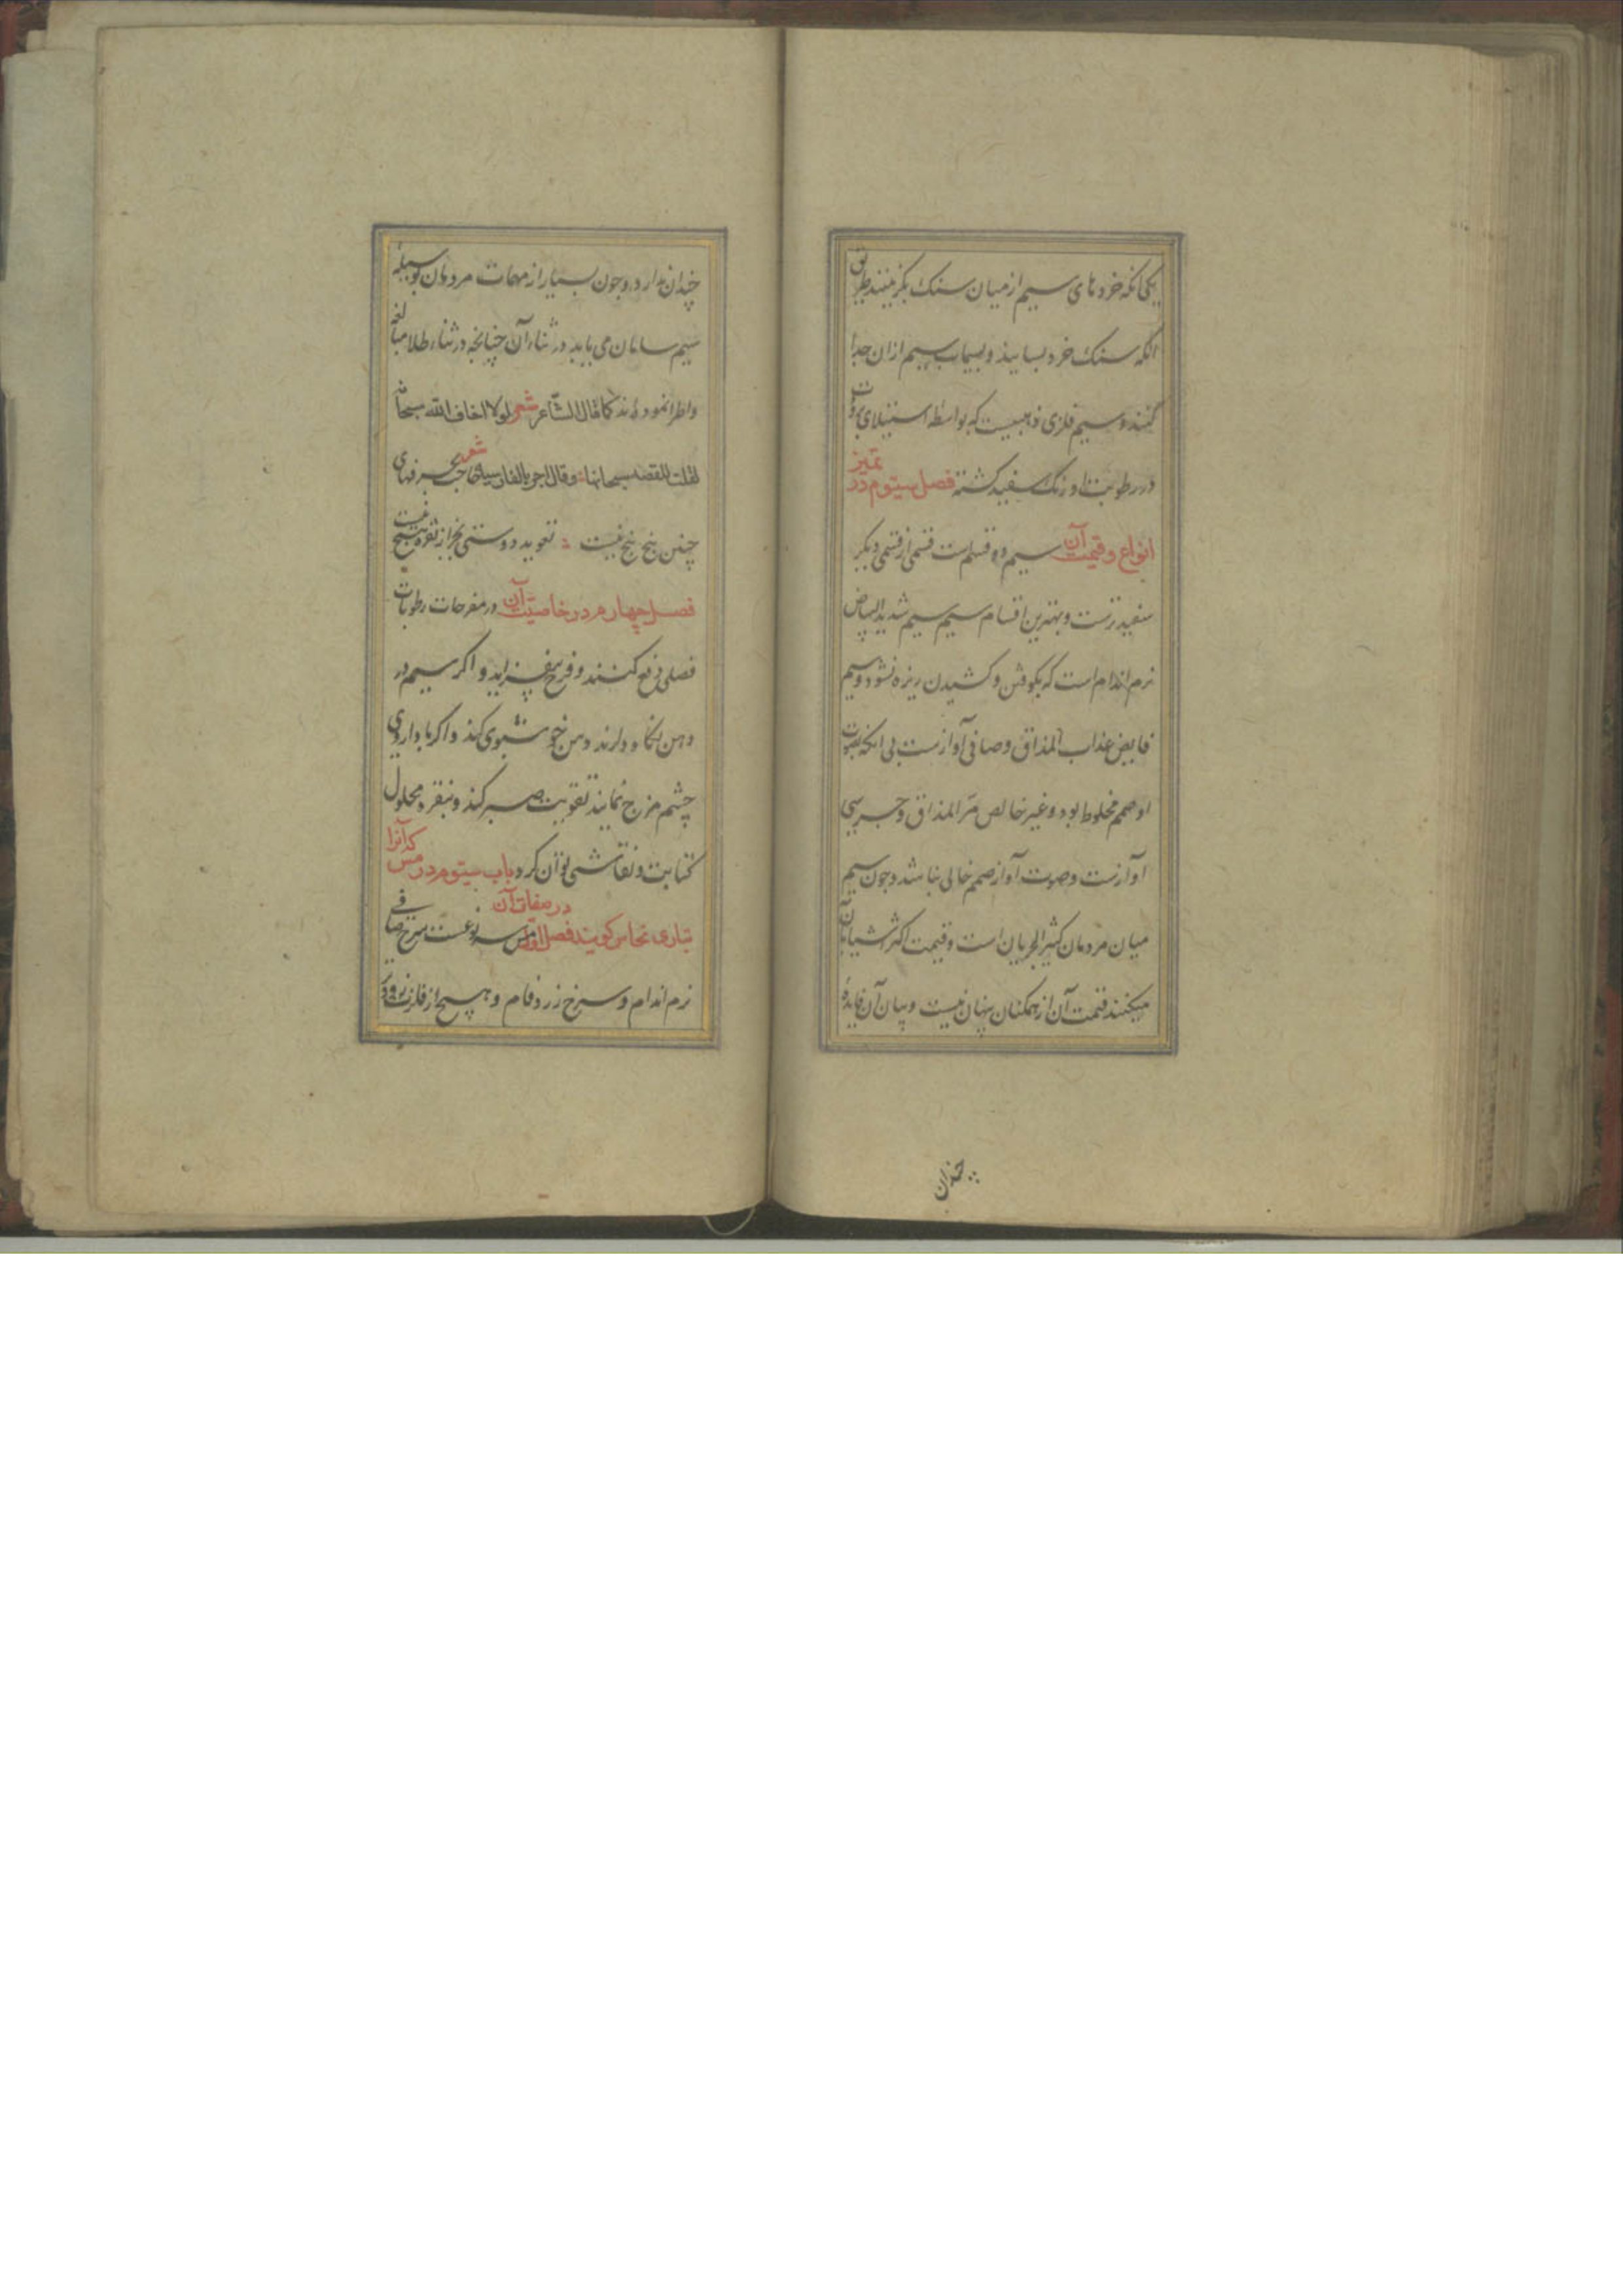 یکی انکه خردهای سیم از میان سنک بکزینند طریق
انکه سنک خرد بسایند و بسیماب سیم ازان جدا
کنند و سیم فلزی ذهبیست که بواسطه استیلای برودت
در رطوبت او رنک سفید کشته فصل سیّوم در تمیز
انواع و قیمت آن سیم ده قسم است قسمی از قسمی دیکر
سفیدترست و بهترین اقسام سیم سیم شدید البیاض
نرم اندام است که بکوفتن و کشیدن ریزه نشود و سیم
عذاب المذاق و صافی آوازست بی انکه بصوت
او صمم مخلوط بود و غیر خالص مرّ المذاق و جرسی
آوازست و صوت آواز صمم خالی نباشد و چون سیم
میان مردمان کثیر الجریان است و قیمت اکثر اشیا بآن
میکنند قیمت آن از همکنان پنهان نیست و بیان آن فایدهٔ
چندان
چندان ندارد و چون بسیار از مهمات مردمان بوسیلهٔ
سیم سامان می یابد در ثناء آن چنانچه در ثناء طلا مبالغه
واطرا نموده‌اند کما قال الشّاعر شعر لولا اخاف الله سبحانه
لقلت للفضه سبحانها وقال اخر بالفارسیه شعر
چنین پنج پنج نیست تعویذ دوستی بجز از نقره هیچ نیست
فصل چهارم در خاصیّت آن در مفرحات رطوبات
فضلی دفع کنند و فرح بیفزاید و اکر سیم در
دهن نکاه دارند دهن خوشبوی کند و اکر با داروی
چشم مزج نمایند تقویت بصر کند و بنقره محلول
کتابت و نقاشی توان کرد باب سیّوم در مس که آنرا
بتازی نحاس کویند فصل اوّل در صفات آن مس سه نوعست سرخ صافی
نرم اندام و سرخ زردفام و هیچ از فلزات